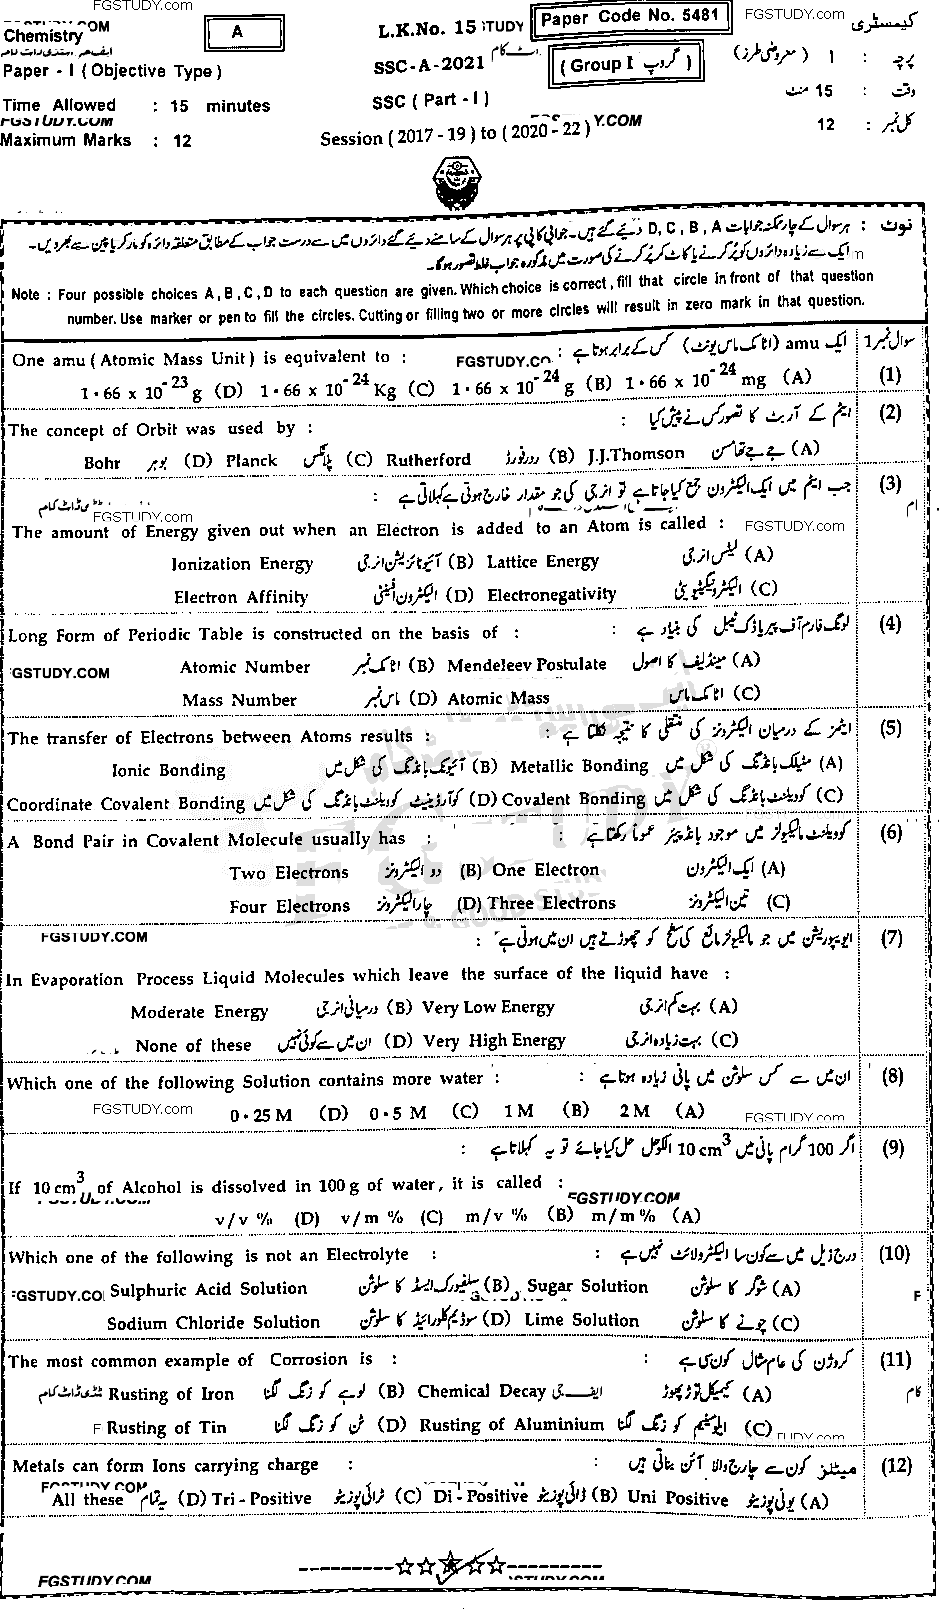 FGSTUDY.com
Chemistry
COM
A
L.K.No. 15
STUDY
Paper Code No. 5481
FGSTUDY.com
کیمسٹری
Paper - I ( Objective Type )
SSC-A-2021
( Group I گروپ )
پرچہ : I ( معروضی طرز )
Time Allowed : 15 minutes
SSC ( Part - I )
وقت : 15 منٹ
FGSTUDY.COM
Maximum Marks : 12
Session ( 2017 - 19 ) to ( 2020 - 22 )
Y.COM
کل نمبر : 12
نوٹ : ہر سوال کے چار ممکنہ جوابات D, C, B, A دیئے گئے ہیں۔ جوابی کاپی پر ہر سوال کے سامنے دیئے گئے دائروں میں سے درست جواب کے مطابق متعلقہ دائرہ کو مارکر یا پین سے بھر دیں۔
ایک سے زیادہ دائروں کو پُر کرنے یا کاٹ کر پُر کرنے کی صورت میں مذکورہ جواب غلط تصور ہو گا۔
Note : Four possible choices A, B, C, D to each question are given. Which choice is correct, fill that circle in front of that question
number. Use marker or pen to fill the circles. Cutting or filling two or more circles will result in zero mark in that question.
سوال نمبر 1 ایک amu (اٹامک ماس یونٹ) کس کے برابر ہوتا ہے :
One amu ( Atomic Mass Unit ) is equivalent to :
FGSTUDY.CO
(1)
1·66 x 10⁻²³ g (D) 1·66 x 10⁻²⁴ Kg (C) 1·66 x 10⁻²⁴ g (B) 1·66 x 10⁻²⁴ mg (A)
(2) ایٹم کے آربٹ کا تصور کس نے پیش کیا :
The concept of Orbit was used by :
Bohr بوہر (D) Planck پلانکس (C) Rutherford ردرفورڈ (B) J.J.Thomson جے جے تھامسن (A)
(3) جب ایٹم میں ایک الیکٹرون جمع کیا جاتا ہے تو انرجی کی جو مقدار خارج ہوتی ہے کہلاتی ہے :
FGSTUDY.com
The amount of Energy given out when an Electron is added to an Atom is called :
FGSTUDY.com
Ionization Energy آئیونائزیشن انرجی (B) Lattice Energy لیٹس انرجی (A)
Electron Affinity الیکٹرون افینٹی (D) Electronegativity الیکٹرونیگیٹیویٹی (C)
(4) لونگ فارم آف پیریاڈک ٹیبل کی بنیاد ہے :
Long Form of Periodic Table is constructed on the basis of :
FGSTUDY.COM
Atomic Number اٹامک نمبر (B) Mendeleev Postulate مینڈلیف کا اصول (A)
Mass Number ماس نمبر (D) Atomic Mass اٹامک ماس (C)
(5) ایٹمز کے درمیان الیکٹرونز کی منتقلی کا نتیجہ نکلتا ہے :
The transfer of Electrons between Atoms results :
Ionic Bonding آئیونک بانڈنگ کی شکل میں (B) Metallic Bonding میٹیلک بانڈنگ کی شکل میں (A)
Coordinate Covalent Bonding کوآرڈینیٹ کوویلنٹ بانڈنگ کی شکل میں (D) Covalent Bonding کوویلنٹ بانڈنگ کی شکل میں (C)
(6) کوویلنٹ مالیکیولز میں موجود بانڈ پیئر عموماً رکھتا ہے :
A Bond Pair in Covalent Molecule usually has :
Two Electrons دو الیکٹرونز (B) One Electron ایک الیکٹرون (A)
Four Electrons چار الیکٹرونز (D) Three Electrons تین الیکٹرونز (C)
FGSTUDY.COM
(7) ایوپوریشن میں جو مالیکیولز مائع کی سطح کو چھوڑتے ہیں ان میں ہوتی ہے :
In Evaporation Process Liquid Molecules which leave the surface of the liquid have :
Moderate Energy درمیانی انرجی (B) Very Low Energy بہت کم انرجی (A)
None of these ان میں سے کوئی نہیں (D) Very High Energy بہت زیادہ انرجی (C)
(8) ان میں سے کس سلوشن میں پانی زیادہ ہوتا ہے :
Which one of the following Solution contains more water :
FGSTUDY.com
0·25 M (D) 0·5 M (C) 1 M (B) 2 M (A)
FGSTUDY.com
(9) اگر 100 گرام پانی میں 10 cm³ الکوحل حل کیا جائے تو یہ کہلاتا ہے :
If 10 cm³ of Alcohol is dissolved in 100 g of water, it is called :
FGSTUDY.COM
v/v % (D) v/m % (C) m/v % (B) m/m % (A)
(10) درج ذیل میں سے کون سا الیکٹرولائٹ نہیں ہے :
Which one of the following is not an Electrolyte :
FGSTUDY.CO
Sulphuric Acid Solution سلفیورک ایسڈ کا سلوشن (B) Sugar Solution شوگر کا سلوشن (A)
Sodium Chloride Solution سوڈیم کلورائیڈ کا سلوشن (D) Lime Solution چونے کا سلوشن (C)
(11) کروژن کی عام مثال کون سی ہے :
The most common example of Corrosion is :
Rusting of Iron لوہے کو زنگ لگنا (B) Chemical Decay کیمیکل توڑ پھوڑ (A)
Rusting of Tin ٹن کو زنگ لگنا (D) Rusting of Aluminium ایلومینیم کو زنگ لگنا (C)
(12) میٹلز کون سے چارج والا آئن بناتی ہیں :
Metals can form Ions carrying charge :
FGSTUDY.COM
All these یہ تمام (D) Tri - Positive ٹرائی پوزیٹو (C) Di - Positive ڈائی پوزیٹو (B) Uni Positive یونی پوزیٹو (A)
FGSTUDY.COM